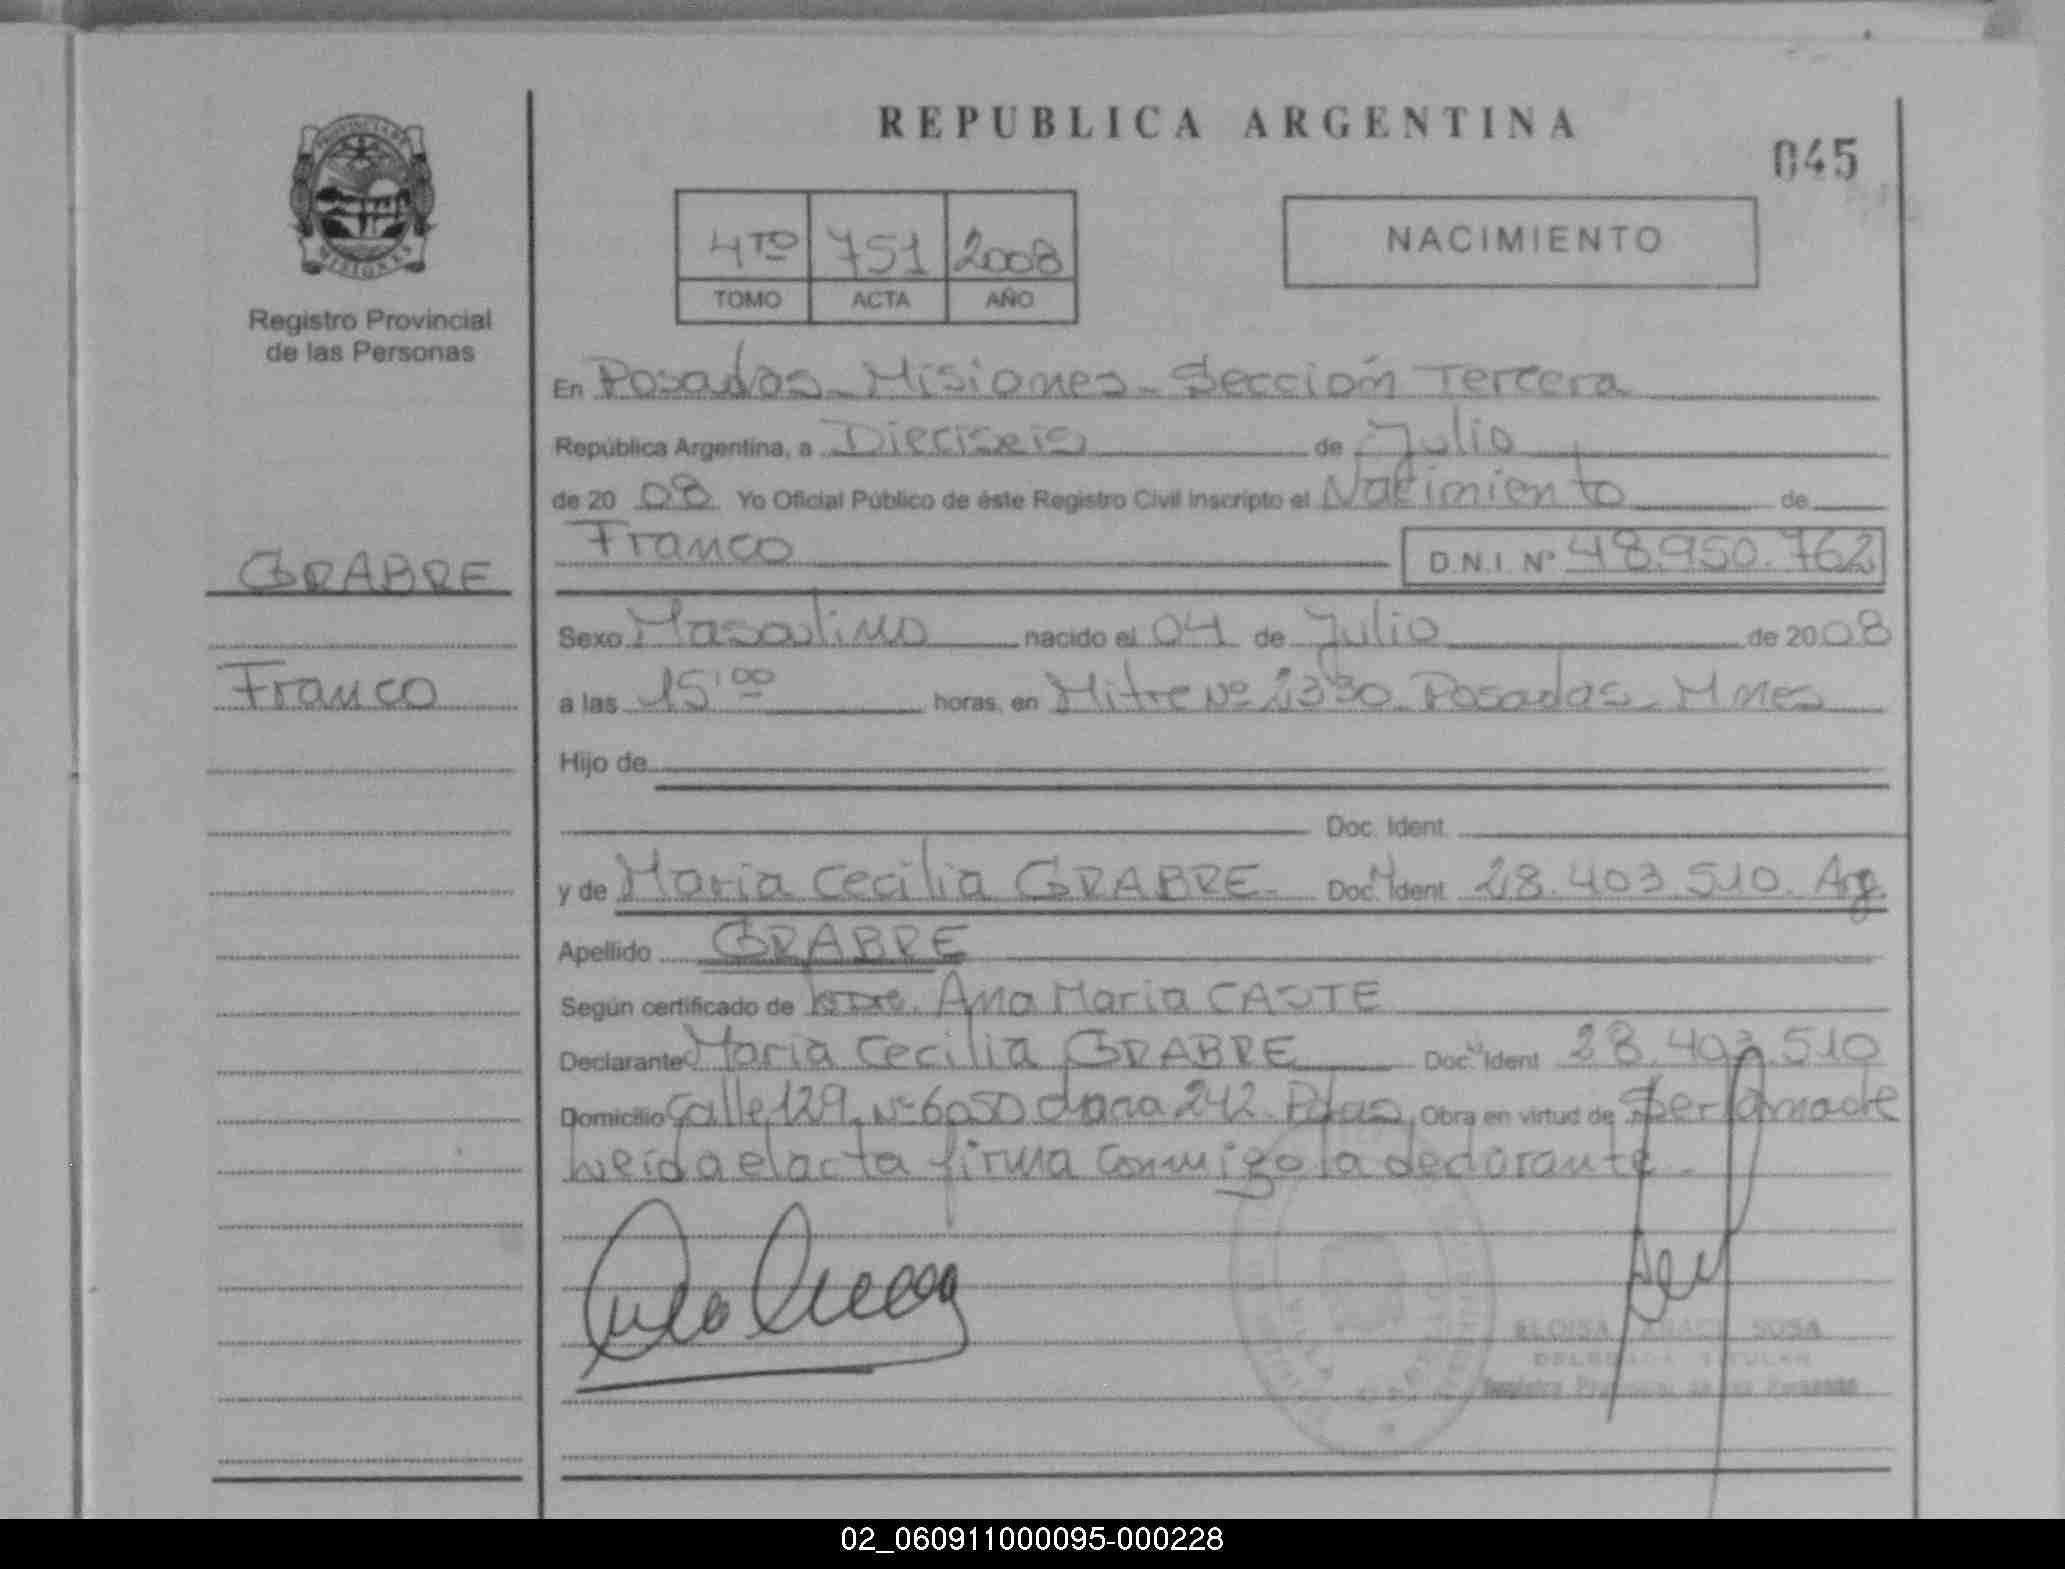 REPUBLICA ARGENTINA
045
PROVINCIA DE
MISIONES
Registro Provincial
de las Personas
4TO 751 2008
TOMO ACTA AÑO
NACIMIENTO
En Posadas - Misiones - Sección Tercera
República Argentina, a Dieciseis de Julio
de 20 08 Yo Oficial Público de éste Registro Civil Inscripto el Nacimiento de
Franco D.N.I. Nº 48.950.762
GRABRE
Sexo Masculino nacido el 04 de Julio de 20 08
Franco
a las 15:00 horas, en Mitre Nº 2330 Posadas - Mnes
Hijo de
Doc. Ident.
y de Maria Cecilia GRABRE - Doc. Ident. 28.403.510. Arg.
Apellido GRABRE
Según certificado de Ana Maria CASTE
Declarante Maria Cecilia GRABRE Doc. Ident 28.403.510
Domicilio Calle 129 Nº 6050 242 Pdas Obra en virtud de Ser
Leida el acta firma conmigo la declarante -
ELOISA SOSA
DELEGADA TITULAR
Registro Provincial de las Personas
02_060911000095-000228